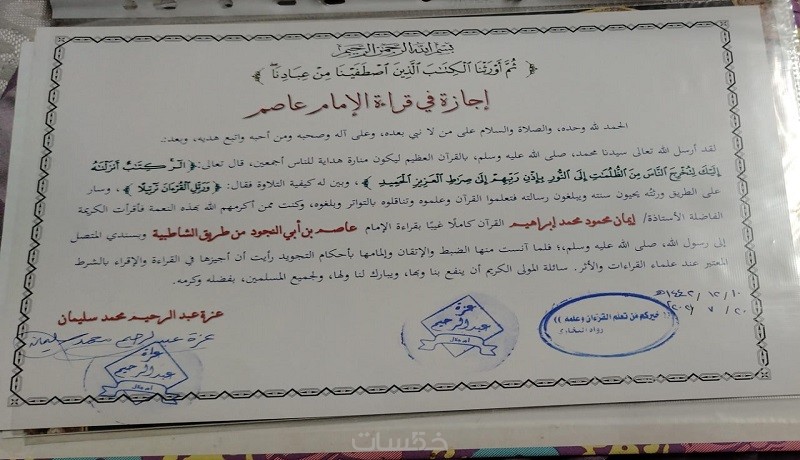 بسم الله الرحمن الرحيم
﴿ ثُمَّ أَوْرَثْنَا الْكِتَابَ الَّذِينَ اصْطَفَيْنَا مِنْ عِبَادِنَا ﴾
إجازة في قراءة الإمام عاصم
الحمد لله وحده، والصلاة والسلام على من لا نبي بعده، وعلى آله وصحبه ومن أحبه واتبع هديه، وبعد:
لقد أرسل الله تعالى سيدنا محمد، صلى الله عليه وسلم، بالقرآن العظيم ليكون منارة هداية للناس أجمعين، قال تعالى: ﴿ الر كِتَابٌ أَنزَلْنَاهُ
إِلَيْكَ لِتُخْرِجَ النَّاسَ مِنَ الظُّلُمَاتِ إِلَى النُّورِ بِإِذْنِ رَبِّهِمْ إِلَى صِرَاطِ الْعَزِيزِ الْحَمِيدِ ﴾، وبين له كيفية التلاوة فقال: ﴿ وَرَتِّلِ الْقُرْءَانَ تَرْتِيلًا ﴾، وسار
على الطريق ورثته يحيون سنته ويبلغون رسالته فتعلموا القرآن وعلموه وتناقلوه بالتواتر وبلغوه، وكنت ممن أكرمهم الله بهذه النعمة فأقرأت الكريمة
الفاضلة الأستاذة/ إيمان محمود محمد إبراهيم القرآن كاملًا غيبًا بقراءة الإمام عاصم بن أبي النجود من طريق الشاطبية وبسندي المتصل
إلى رسول الله، صلى الله عليه وسلم، فلما آنست منها الضبط والإتقان وإلمامها بأحكام التجويد رأيت أن أجيزها في القراءة والإقراء بالشرط
المعتبر عند علماء القراءات والأثر. سائلة المولى الكريم أن ينفع بنا وبها، ويبارك لنا ولها، ولجميع المسلمين، بفضله وكرمه.
١٤٤٢/١٢/١٠هـ
٢٠٢١/٧/٢٠
((خيركم من تعلم القرءان وعلمه))
رواه البخاري
عزة
عبد الرحيم
عزة عبد الرحيم محمد سليمان
عزة عبد الرحيم محمد سليمان
عزة
عبد الرحيم
خمسات